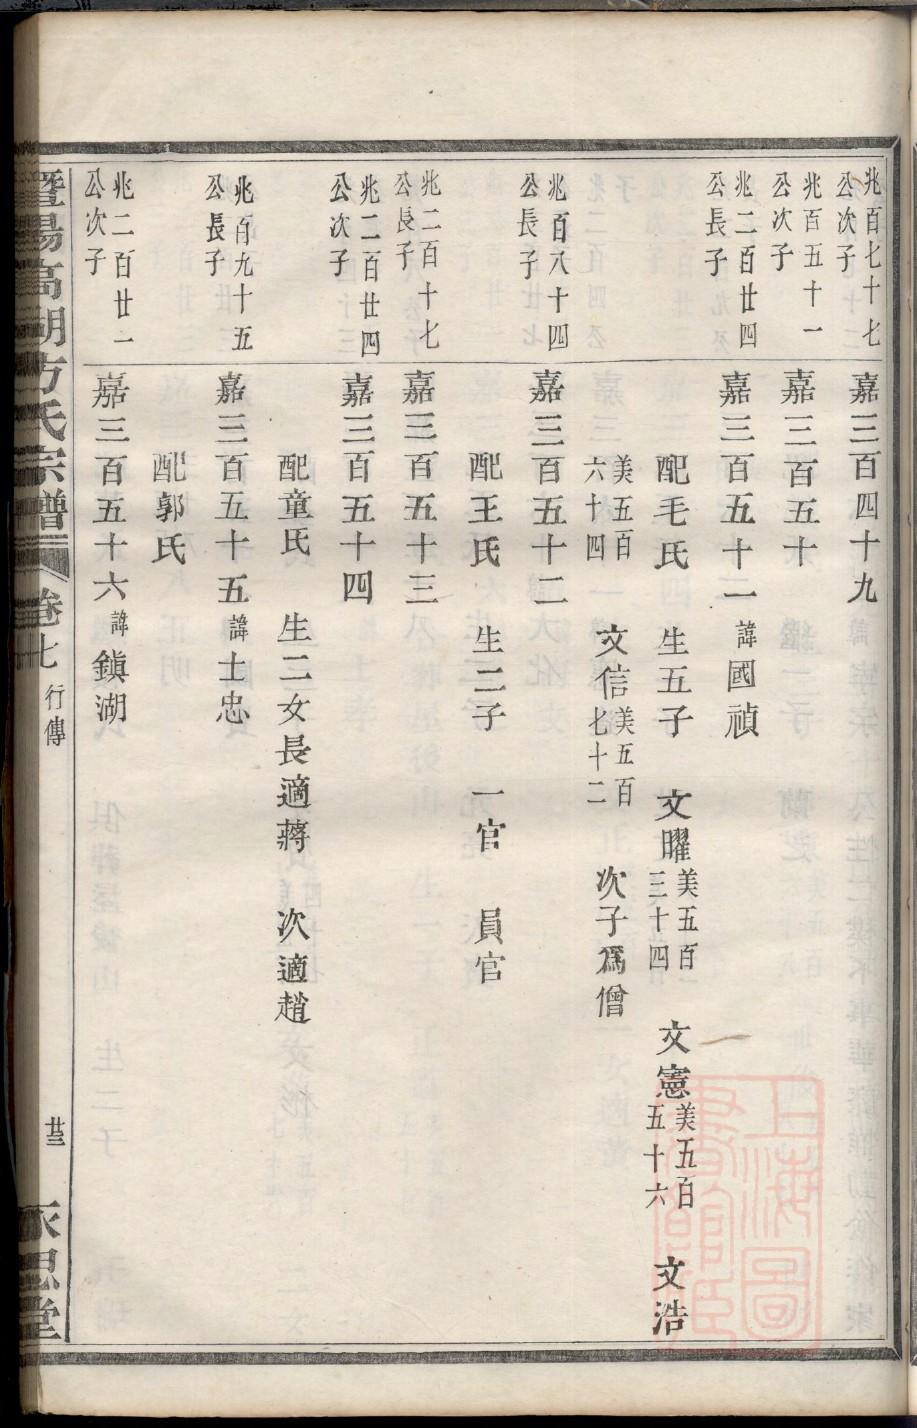 兆百七十七公次子
嘉三百四十九
兆百五十一公次子
嘉三百五十
兆二百廿四公長子
嘉三百五十一 諱國禎
配毛氏 生五子 文曜 美五百三十四 文憲 美五百五十六 文浩
美五百六十四 文信 美五百七十二 次子爲僧
兆百八十四公長子
嘉三百五十二
配王氏 生二子 一官 員官
兆二百十七公長子
嘉三百五十三
兆二百廿四公次子
嘉三百五十四
配童氏 生二女長適蔣 次適趙
兆百九十五公長子
嘉三百五十五 諱士忠
配郭氏
兆二百廿一公次子
嘉三百五十六 諱鎭湖
暨陽高湖方氏宗譜 卷七 行傳 廿三 永思堂
上海圖書館藏